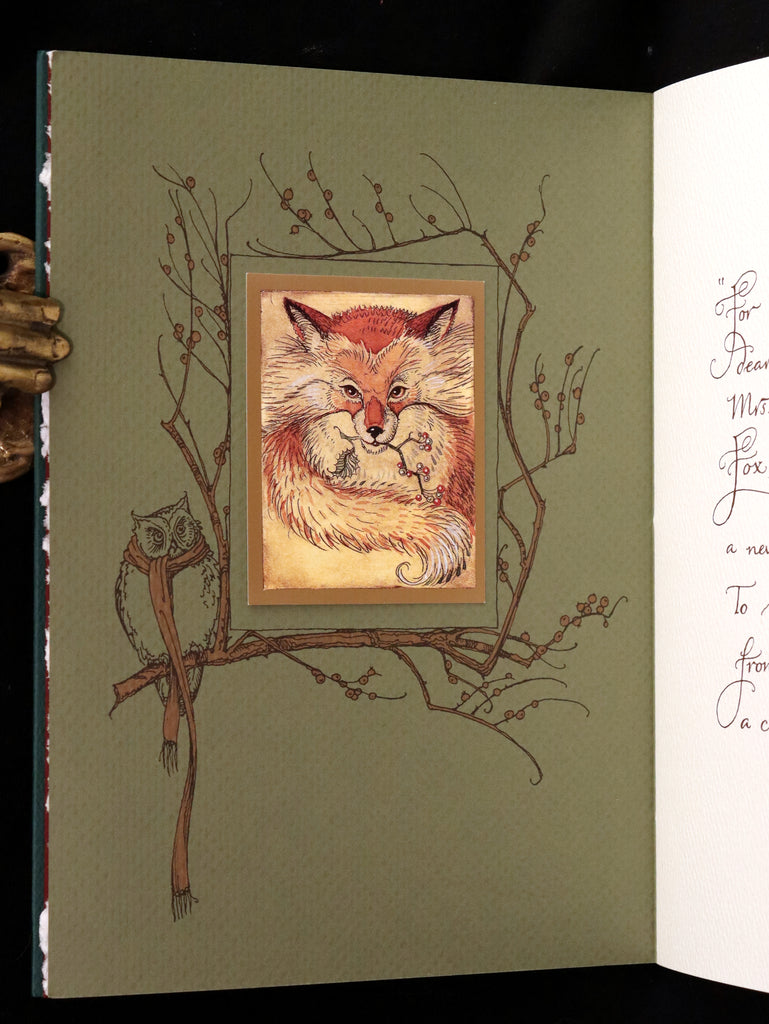 "For
dear
Mrs.
Fox
a new
To
from
a c